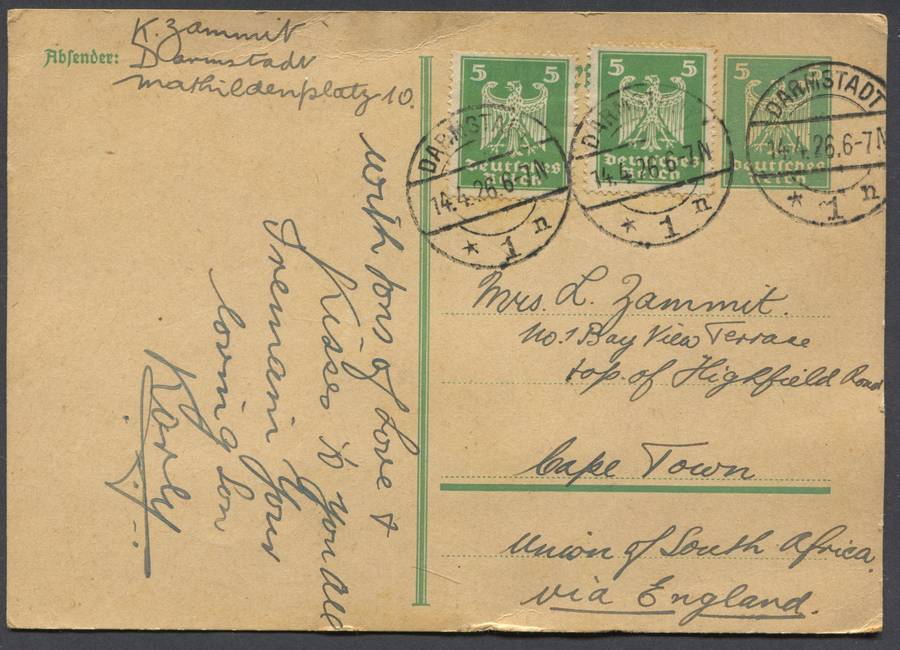 Absender:
K. Zammit
Darmstadt
Mathildenplatz 10.
5 5
Deutsches
Reich
5 5
Deutsches
Reich
5
Deutsches
Reich
DARMSTADT
14.4.26.6-7N
* 1 n
DARMSTADT
14.4.26.6-7N
* 1 n
DARMSTADT
14.4.26.6-7N
* 1 n
Mrs. L. Zammit.
No. 1 Bay View Terrace
top of Highfield Road
Cape Town
Union of South Africa.
via England.
With tons of love &
Kisses to you all
I remain your
loving Son
Karly